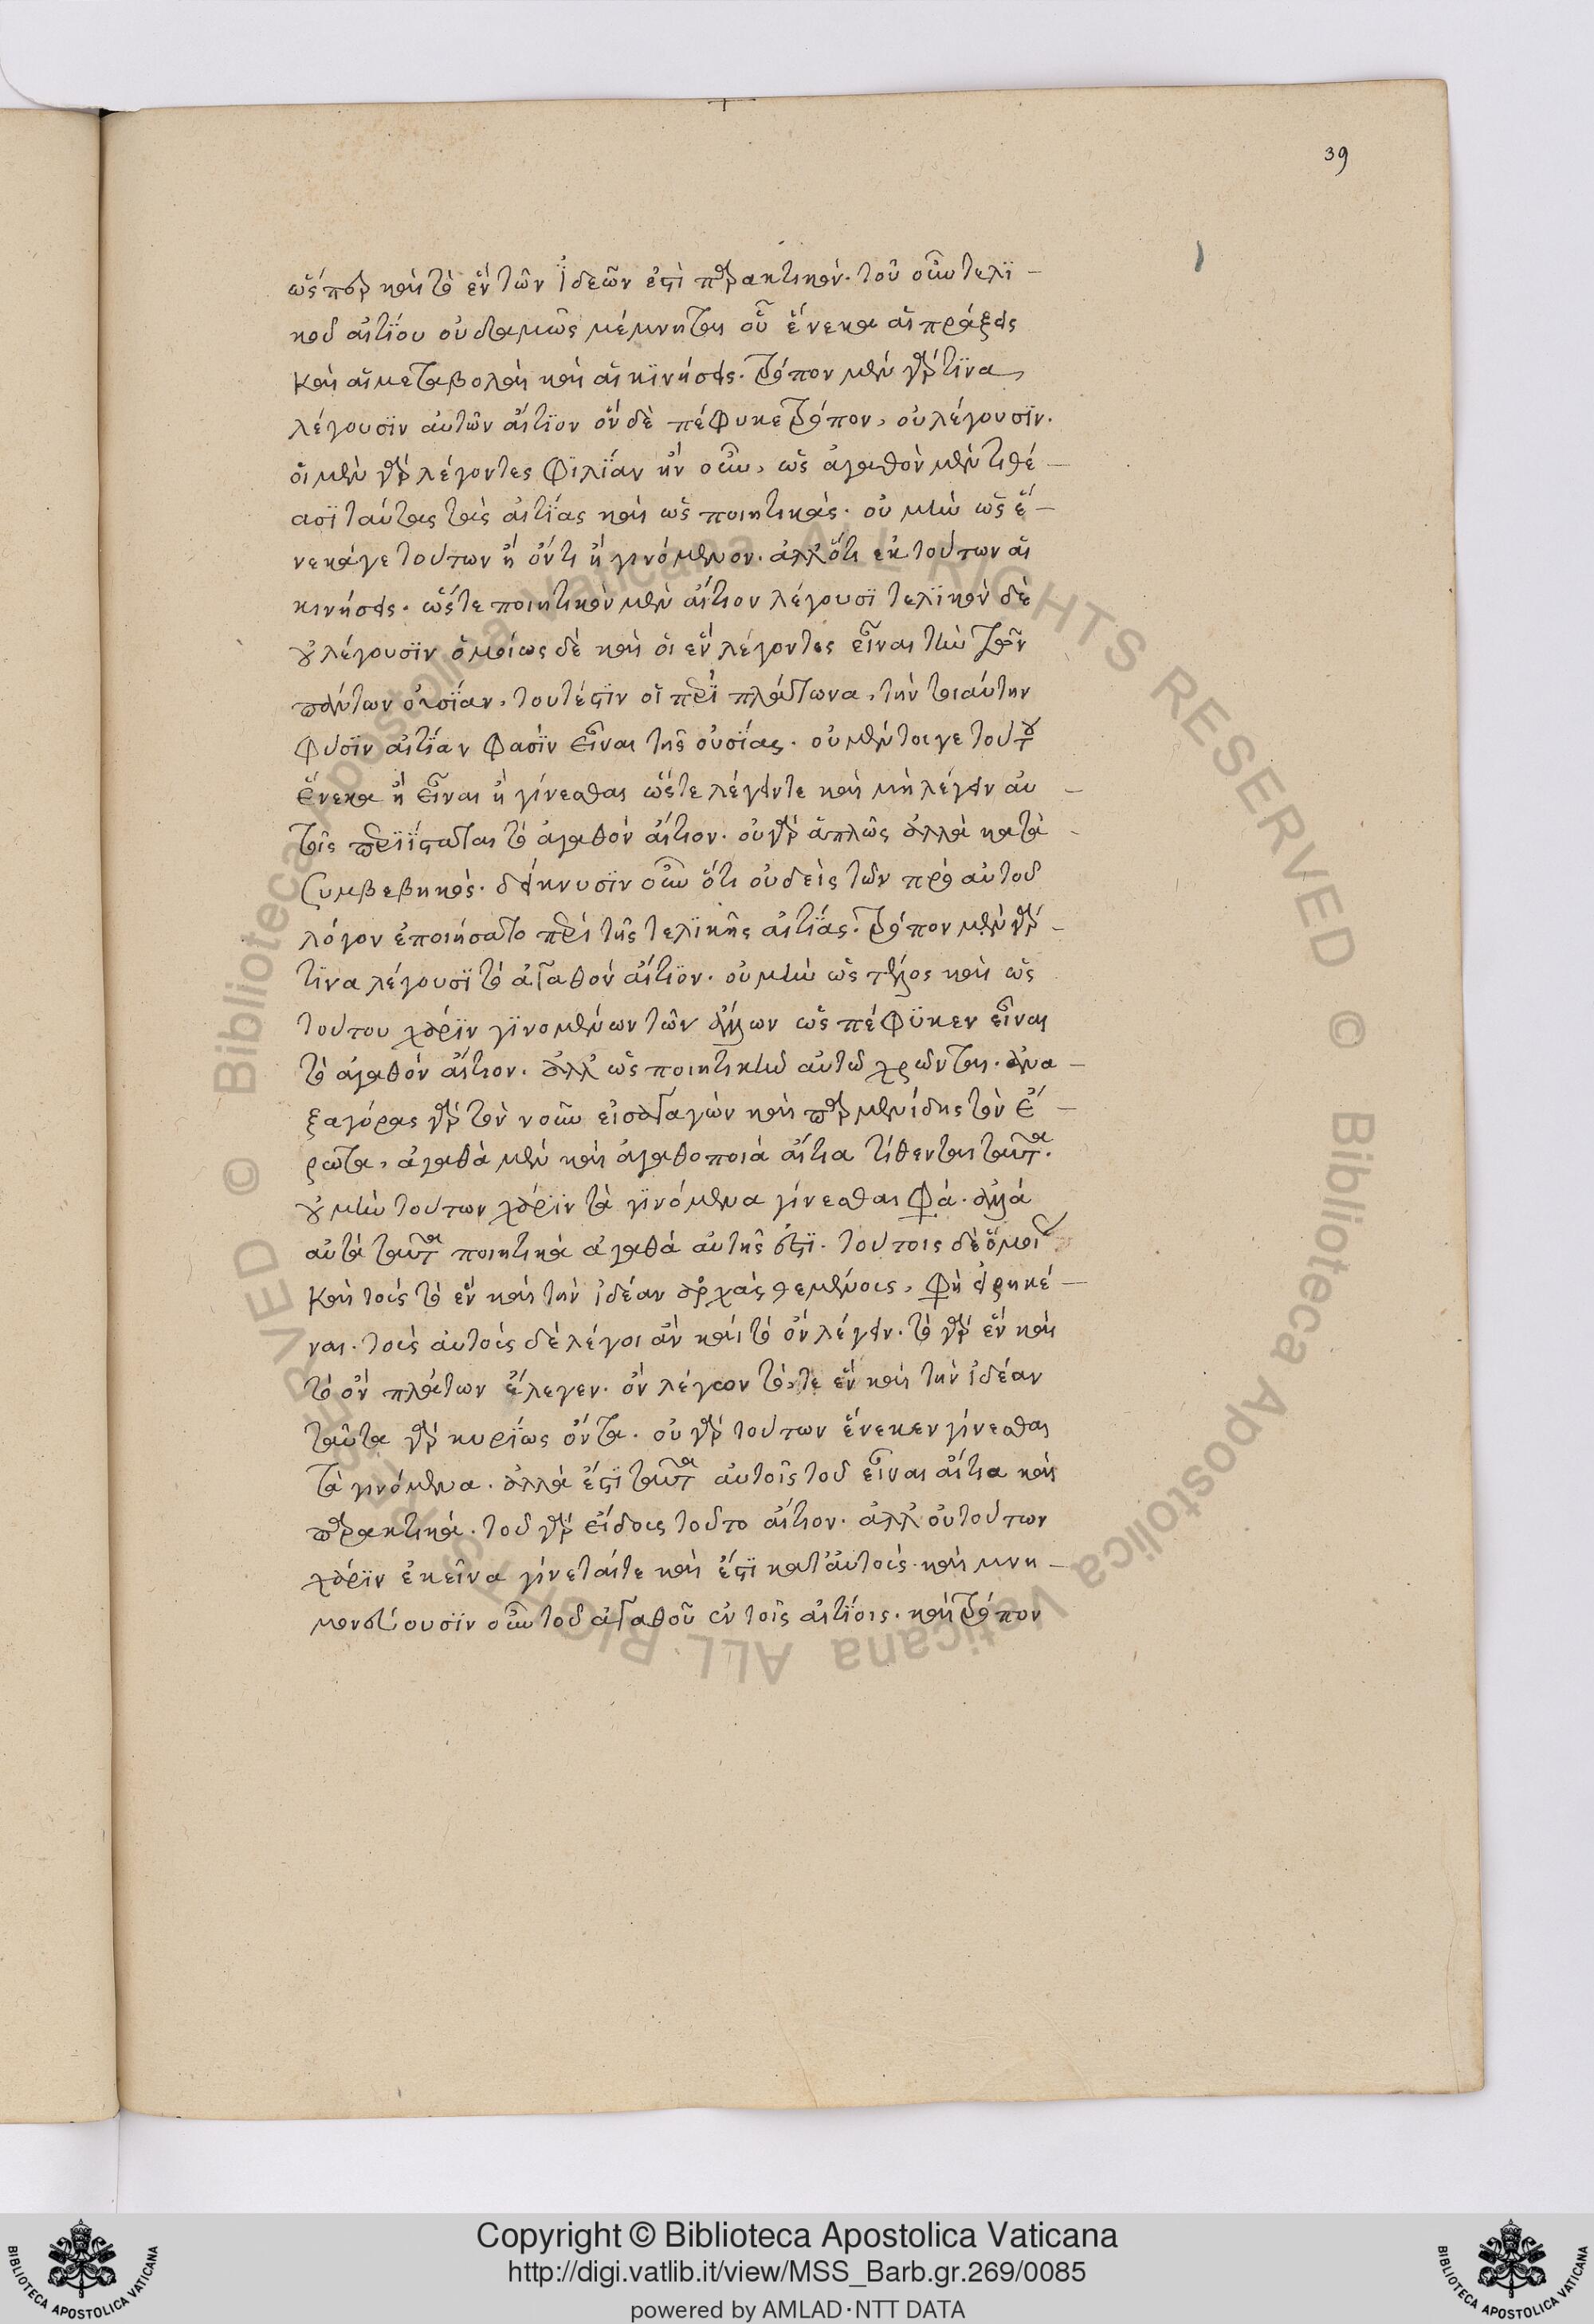 39
ὥσπερ καὶ τὸ ἓν τῶν ἰδεῶν ἐστὶ παρακτικόν. τοῦ οὖν τελι-
κοῦ αἰτίου οὐδαμῶς μέμνηται οὗ ἕνεκα αἱ πράξεις
καὶ αἱ μεταβολαὶ καὶ αἱ κινήσεις. τρόπον μὲν γάρ τινα,
λέγουσιν αὐτῶν αἴτιον ὃν δὲ πέφυκε τρόπον, οὐ λέγουσιν.
οἱ μὲν γὰρ λέγοντες φιλίαν ἢ νοῦν, ὡς ἀγαθὸν μὲν τιθέ-
ασι ταύτας τὰς αἰτίας καὶ ὡς ποιητικάς. οὐ μὴν ὡς ἕ-
νεκάγε τούτων ἢ ὄντι ἢ γινόμενον. ἀλλ' ὅτι ἐκ τούτων αἱ
κινήσεις. ὥστε ποιητικὸν μὲν αἴτιον λέγουσι τελικὸν δὲ
οὐ λέγουσιν ὁμοίως δὲ καὶ οἱ ἓν λέγοντες εἶναι τὴν τῶν
πάντων οὐσίαν, τουτέστιν οἱ περὶ πλάτωνα, τὴν τοιαύτην
φύσιν αἰτίαν φασὶν εἶναι τῆς οὐσίας. οὐ μέντοιγε τούτου
ἕνεκα ἢ εἶναι ἢ γίνεσθαι ὥστε λέγειν τε καὶ μὴ λέγειν αὐ-
τοῖς περιΐσταται τὸ ἀγαθὸν αἴτιον. οὐ γὰρ ἁπλῶς ἀλλὰ κατὰ
συμβεβηκός. δείκνυσιν οὖν ὅτι οὐδεὶς τῶν πρὸ αὐτοῦ
λόγον ἐποιήσατο περὶ τῆς τελικῆς αἰτίας. τρόπον μὲν γάρ
τινα λέγουσι τὸ ἀγαθὸν αἴτιον. οὐ μὴν ὡς τέλος καὶ ὡς
τούτου χάριν γινομένων τῶν ἄλλων ὡς πέφυκεν εἶναι
τὸ ἀγαθὸν αἴτιον. ἀλλ' ὡς ποιητικῷ αὐτῷ χρῶνται. ἀνα-
ξαγόρας γὰρ τὸν νοῦν εἰσαγαγὼν καὶ παρμενίδης τὸν ἔ-
ρωτα, ἀγαθὰ μὲν καὶ ἀγαθοποιὰ αἴτια τίθενται ταῦτα.
οὐ μὴν τούτων χάριν τὰ γινόμενα γίνεσθαι φασὶ. ἀλλὰ
αὐτὰ ταῦτα ποιητικὰ ἀγαθὰ αὐτῆς ἐστι. τούτοις δὲ ὅμοια
καὶ τοῖς τὸ ἓν καὶ τὴν ἰδέαν ἀρχὰς θεμένοις, φησὶ εἰρηκέ-
ναι. τοῖς αὐτοῖς δὲ λέγοι ἂν καὶ τὸ ὂν λέγειν. τὸ γὰρ ἓν καὶ
τὸ ὂν πλάτων ἔλεγεν. ὂν λέγων τό, τε ἓν καὶ τὴν ἰδέαν
ταῦτα γὰρ κυρίως ὄντα. οὐ γὰρ τούτων ἕνεκεν γίνεσθαι
τὰ γινόμενα. ἀλλὰ ἔστι ταῦτα αὐτοῖς τοῦ εἶναι αἴτια καὶ
παρακτικά. τοῦ γὰρ εἴδους τοῦτο αἴτιον. ἀλλ' οὐ τούτων
χάριν ἐκεῖνα γίνεταίτε καὶ ἔστι κατ' αὐτούς. καὶ μνη-
μονεύουσιν οὖν τοῦ ἀγαθοῦ ἐν τοῖς αἰτίοις. καὶ τρόπον
Copyright © Biblioteca Apostolica Vaticana
http://digi.vatlib.it/view/MSS_Barb.gr.269/0085
powered by AMLAD·NTT DATA